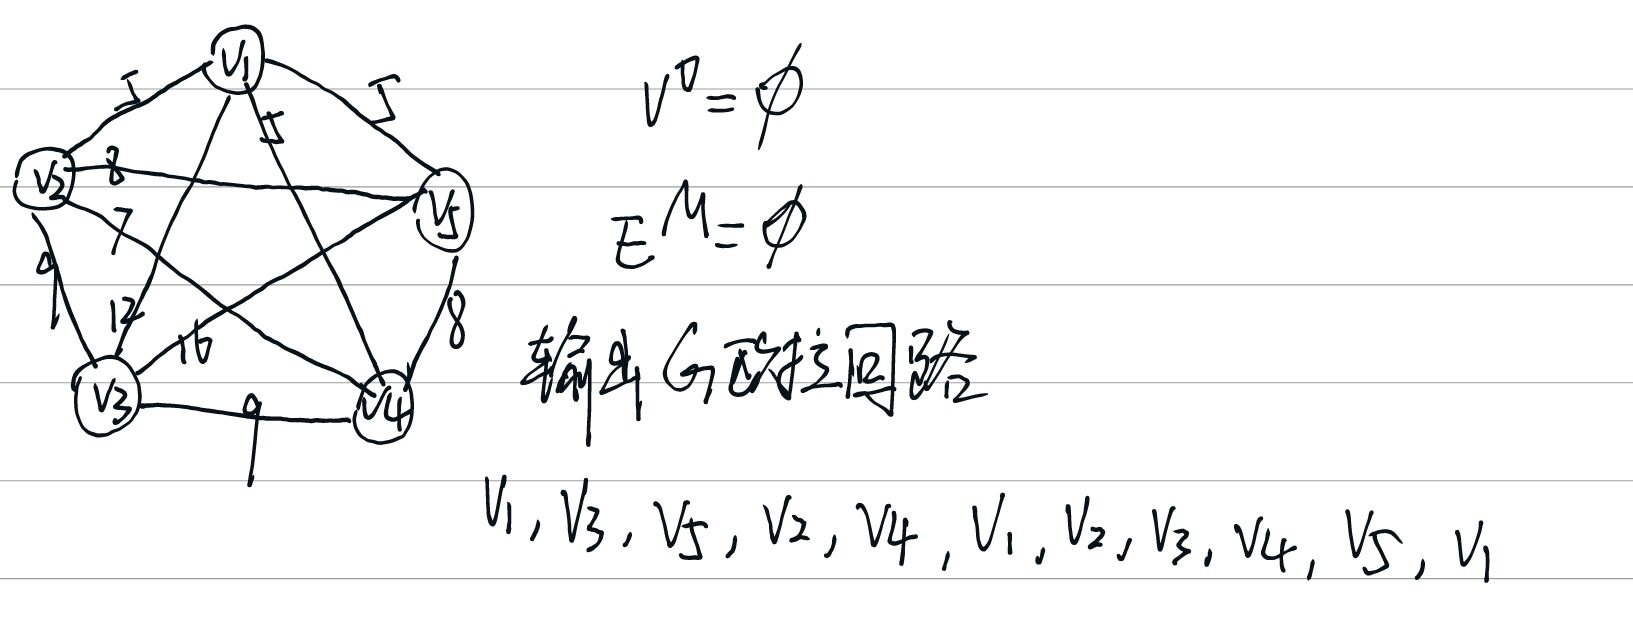 V₁
5
5
5
V₂
8
V₅
7
9
12
16
8
V₃
9
V4
V⁰=∅
E^M=∅
输出G欧拉回路
V₁, V₃, V₅, V₂, V4, V₁, V₂, V₃, V4, V₅, V₁